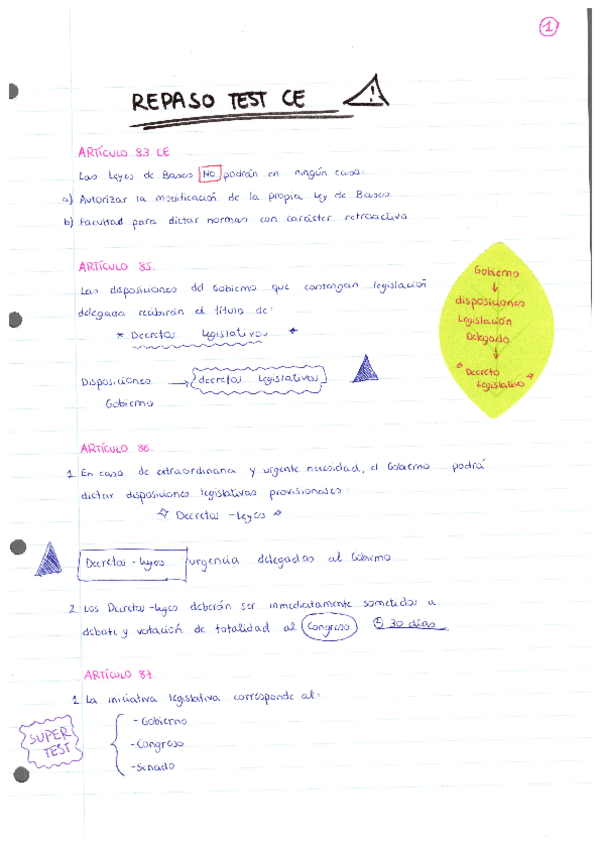 1
REPASO TEST CE
!
ARTÍCULO 83 CE
Las Leyes de Bases NO podrán en ningún caso:
a) Autorizar la modificación de la propia Ley de Bases
b) Facultad para dictar normas con carácter retroactivo
ARTÍCULO 85.
Las disposiciones del Gobierno que contengan legislación
delegada recibirán el título de:
* Decretos legislativos *
Disposiciones → decretos legislativos
Gobierno
Gobierno
↓
disposiciones
Legislación
Delegado
↓
Decreto
legislativo
ARTÍCULO 86.
1. En caso de extraordinaria y urgente necesidad, el Gobierno podrá
dictar disposiciones legislativas provisionales:
Decretos-leyes
Decretos-leyes urgencia delegadas al Gobierno
2. Los Decretos-leyes deberán ser inmediatamente sometidos a
debate y votación de totalidad al Congreso 30 días
ARTÍCULO 87.
1. La iniciativa legislativa corresponde al:
- Gobierno
- Congreso
- Senado
SUPER
TEST